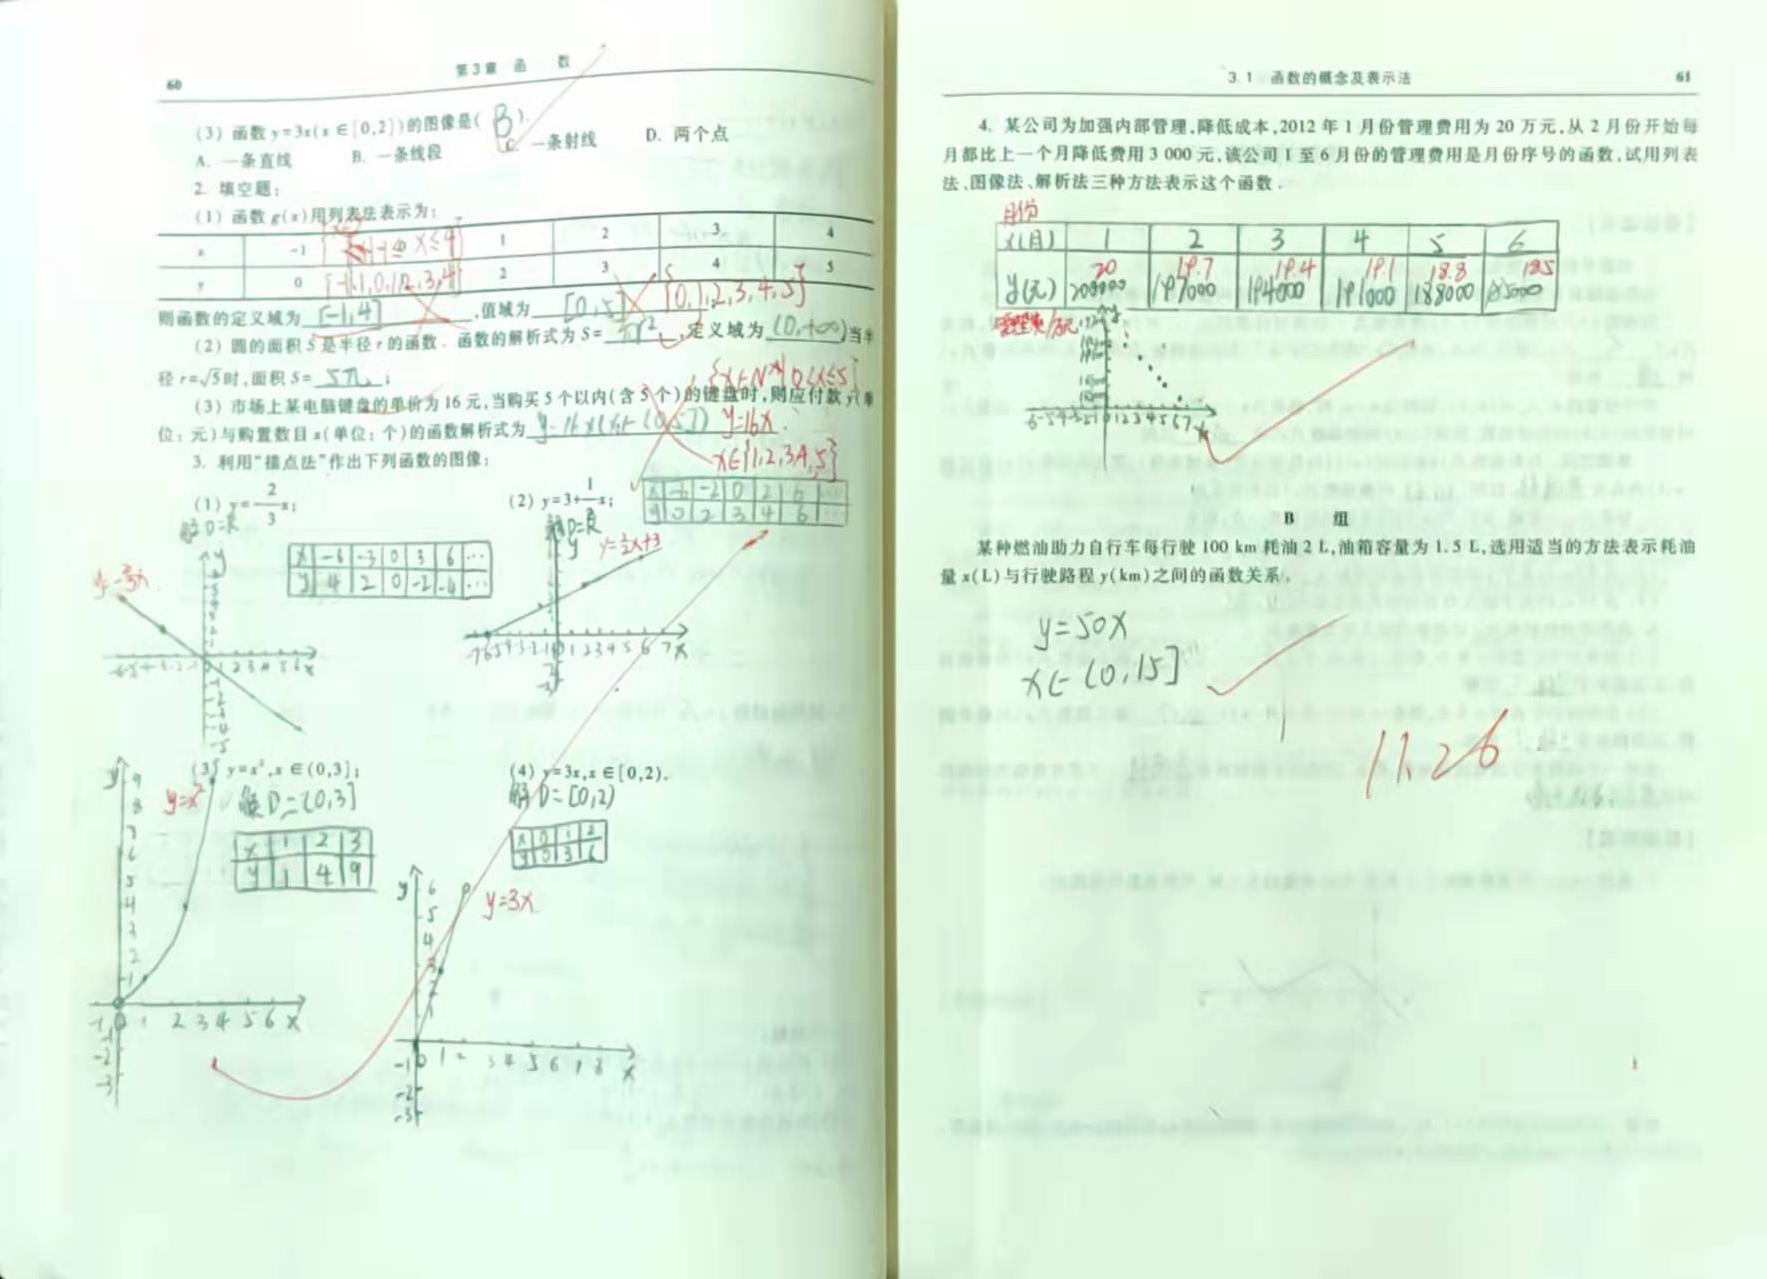 60
第3章 函 数
(3) 函数 y=3x(x∈[0,2])的图像是( B ).
A. 一条直线 B. 一条线段 C. 一条射线 D. 两个点
2. 填空题:
(1) 函数 g(x)用列表法表示为:
x -1 1 2 3 4
y 0 2 3 4 5
{-1,0,1,2,3,4}
则函数的定义域为 [-1,4] ,值域为 [0,5] {0,1,2,3,4,5}
(2) 圆的面积 S 是半径 r 的函数. 函数的解析式为 S= πr² ,定义域为 (0,+∞) 当半
径 r=√5时,面积 S= 5π ;
{x∈N*|0<x≤5}
(3) 市场上某电脑键盘的单价为 16 元,当购买 5 个以内(含 5 个)的键盘时,则应付款 y(单
位: 元)与购置数目 x(单位: 个)的函数解析式为 y=16x(x∈(0,5]) y=16x.
x∈{1,2,3,4,5}
3. 利用“描点法”作出下列函数的图像:
(1) y=-2/3x;
解D=R
x -6 -3 0 3 6 …
y 4 2 0 -2 -4 …
y=-2/3x
(2) y=3+1/2x;
解D=R
x -6 -2 0 2 6 …
y 0 2 3 4 6 …
y=1/2x+3
(3) y=x²,x∈(0,3];
解D=(0,3]
x 1 2 3
y 1 4 9
y=x²
(4) y=3x,x∈[0,2).
解D=[0,2)
x 0 1 2
y 0 3 6
y=3x
3.1 函数的概念及表示法
61
4. 某公司为加强内部管理,降低成本,2012 年 1 月份管理费用为 20 万元,从 2 月份开始每
月都比上一个月降低费用 3 000 元,该公司 1 至 6 月份的管理费用是月份序号的函数,试用列表
法、图像法、解析法三种方法表示这个函数.
月份
x(月) 1 2 3 4 5 6
20 19.7 19.4 19.1 18.8 18.5
y(元) 200000 197000 194000 191000 188000 185000
B 组
某种燃油助力自行车每行驶 100 km 耗油 2 L,油箱容量为 1.5 L,选用适当的方法表示耗油
量 x(L)与行驶路程 y(km)之间的函数关系.
y=50x
x∈(0,15]
11.26